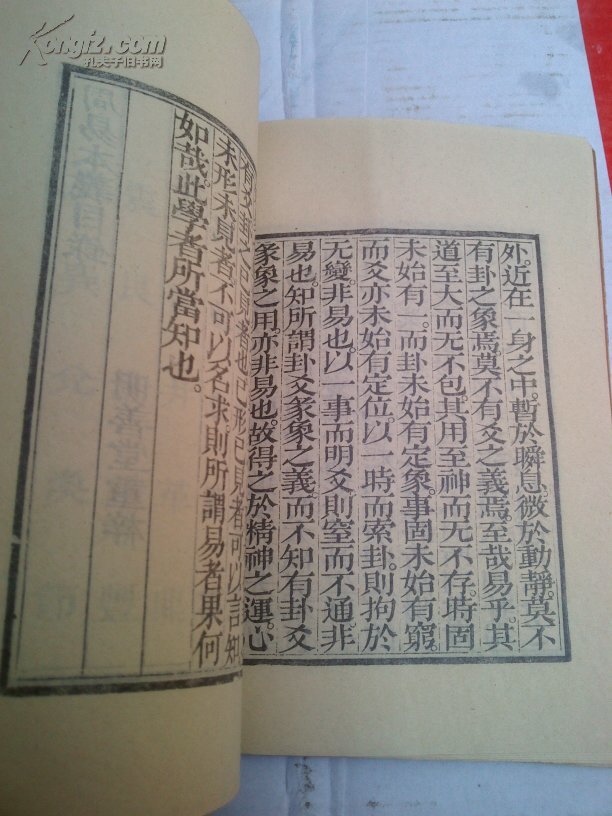 Kongfz.com
孔夫子旧书网
外。近在一身之中。暫於瞬息。微於動靜。莫不
有卦之象焉。莫不有爻之義焉。至哉易乎。其
道至大而无不包。其用至神而无不存。時固
未始有一。而卦未始有定象。事固未始有窮。
而爻亦未始有定位。以一時而索卦。則拘於
无變。非易也。以一事而明爻。則窒而不通。非
易也。知所謂卦爻彖象之義。而不知有卦爻
彖象之用。亦非易也。故得之於精神之運。心
有爻卦之已見者也已形已見者可以言知
未形未見者不可以名求則所謂易者果何
如哉此學者所當知也。
周易本義目錄
明善堂重梓